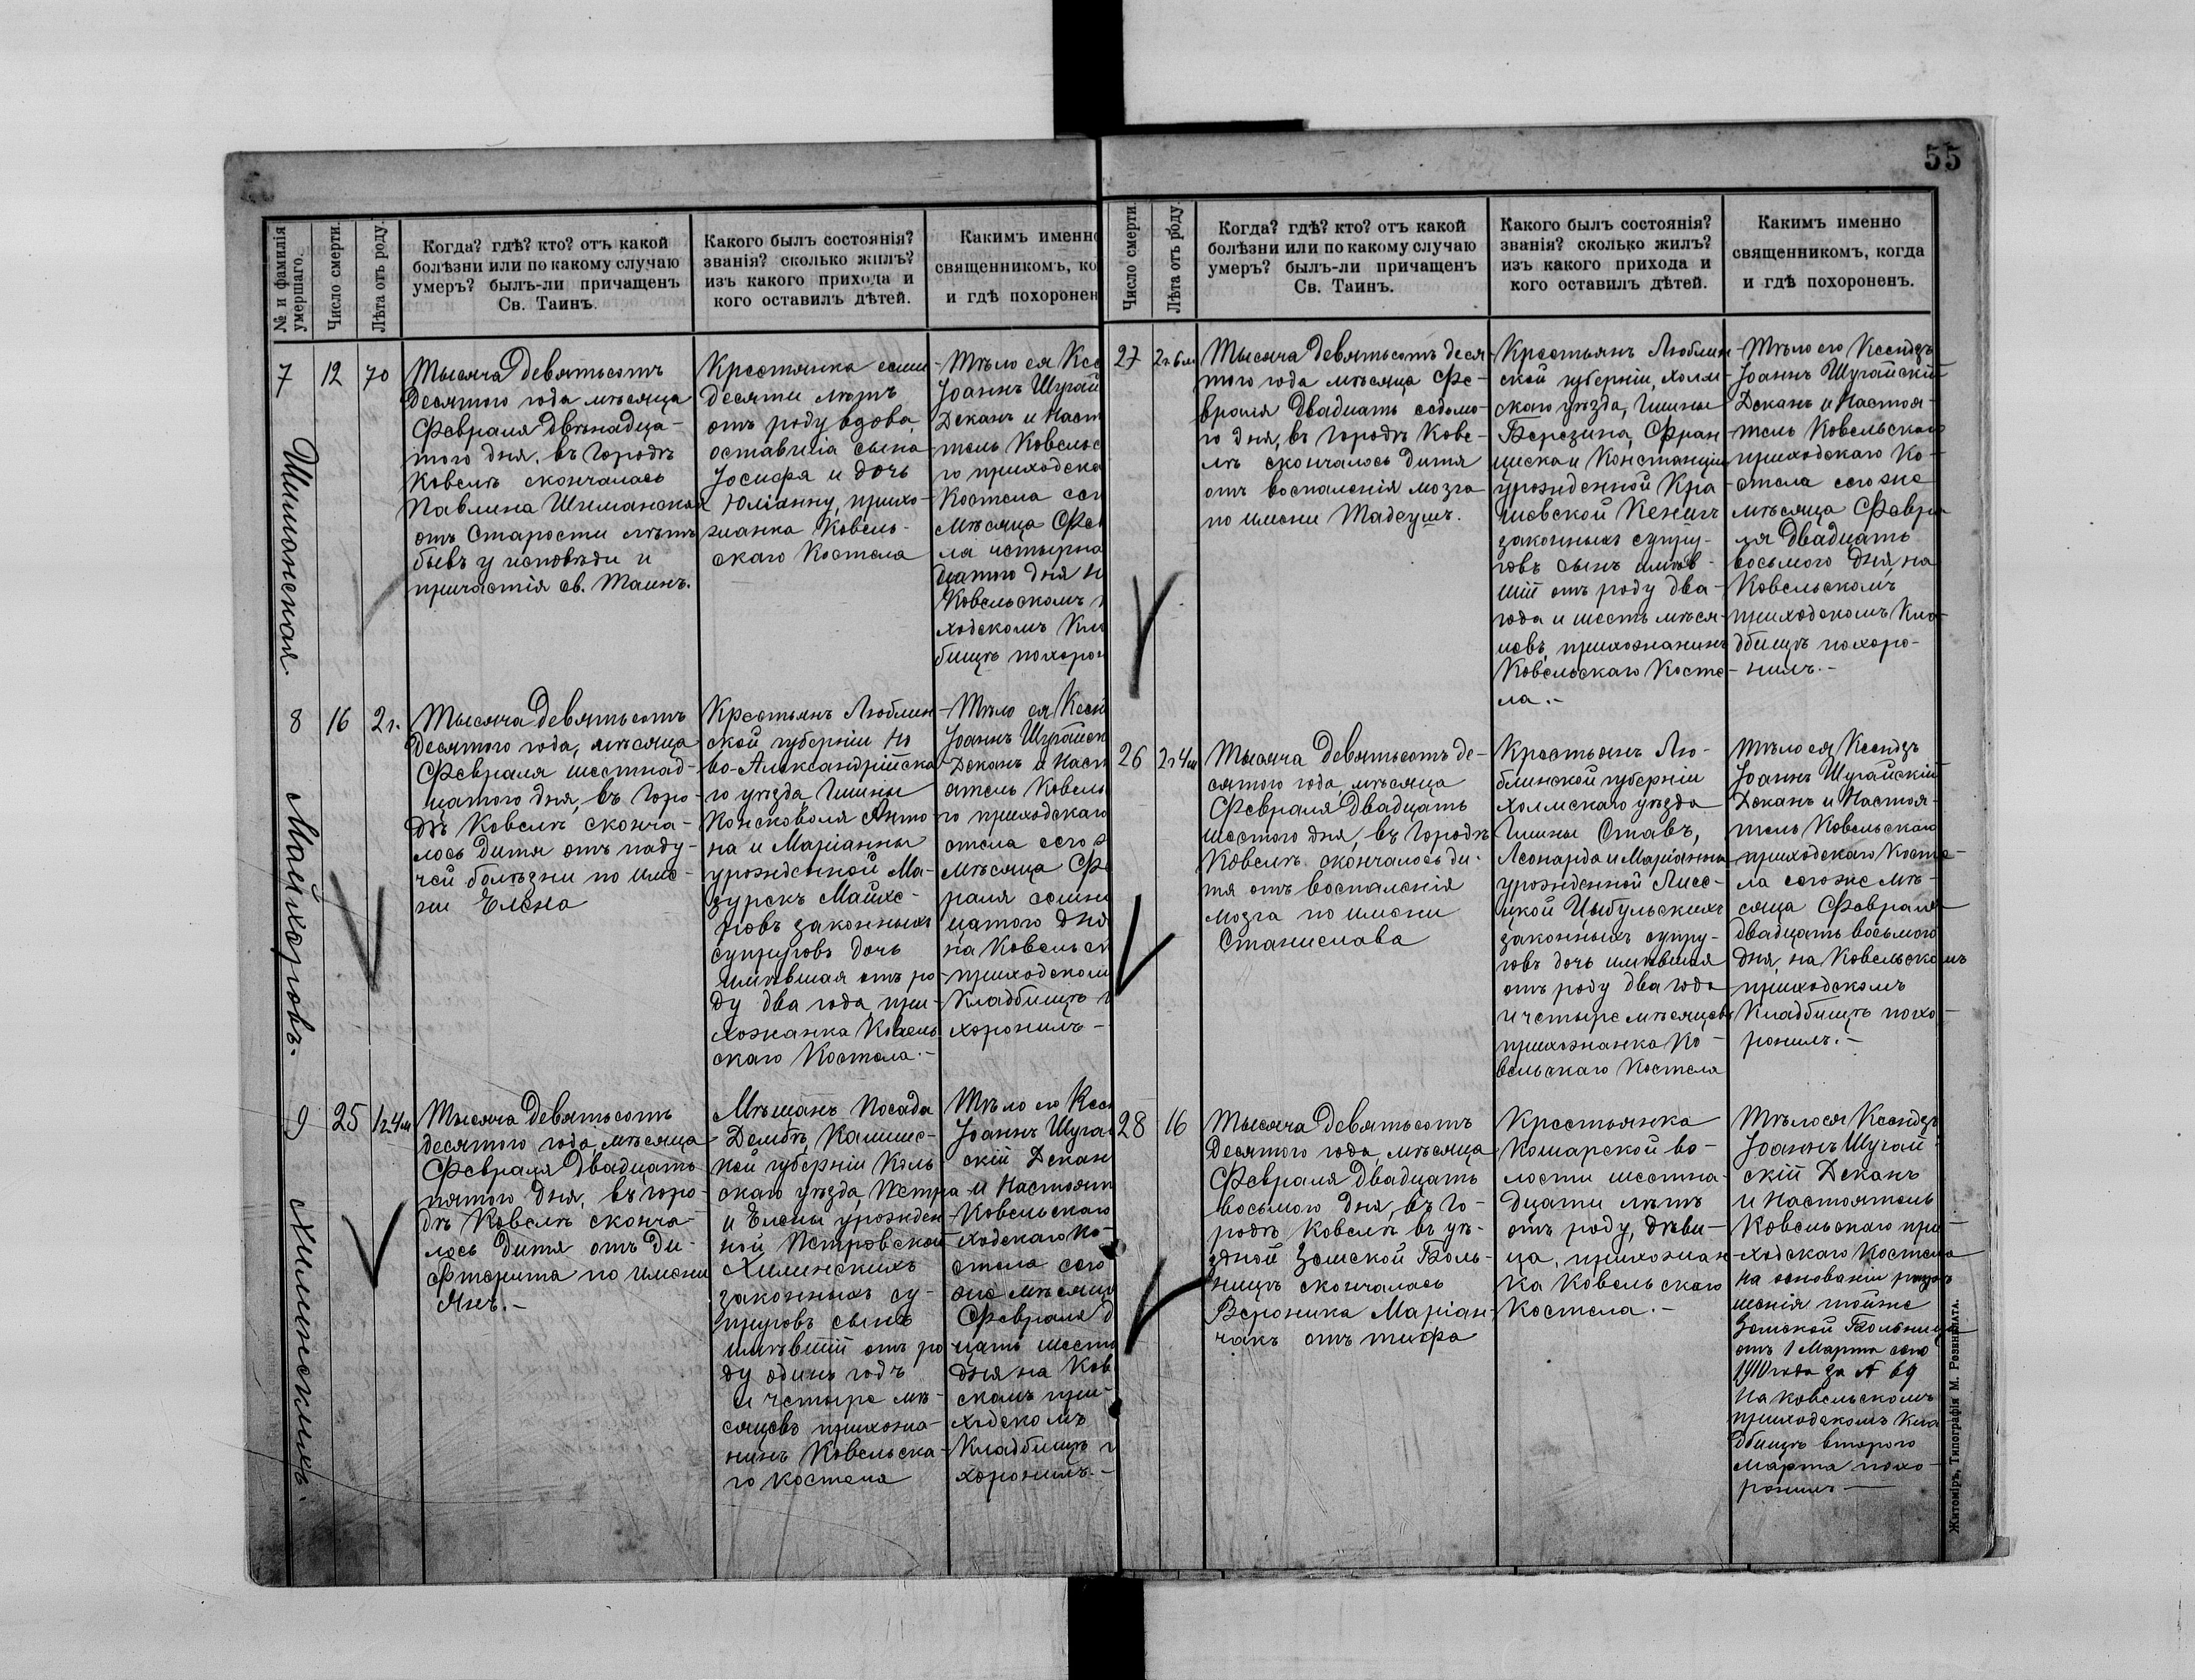 55
№ и фамилія умершаго.
Число смерти.
Лѣта отъ роду.
Когда? гдѣ? кто? отъ какой
болѣзни или по какому случаю
умеръ? былъ-ли причащенъ
Св. Таинъ.
Какого былъ состоянія?
званія? сколько жилъ?
изъ какого прихода и
кого оставилъ дѣтей.
Каким именно
священникомъ, ко
и гдѣ похоронен
7
Шимонская.
12
70
Тысяча девятьсотъ
десятого года мѣсяца
Февраля двѣнадца-
того дня, въ городѣ
Ковелѣ скончалась
Павлина Шимонская
отъ старости лѣтъ
бывъ у исповѣди и
причастія св. Таинъ.
Крестянка семи-
десяти лѣтъ
отъ роду вдова
оставила сына
Іосифа и дочь
Юліанну, прихо-
жанка Ковель-
скаго Костела
Тѣло ея Ксе
Іоаннъ Шугай
Деканъ и Наст
тель Ковельс
го приходска
Костела сег
мѣсяца Фев
ля четырна
дцатого дня н
Ковельскомъ п
ходскомъ Кла
бищѣ похорон
8
Майхеровъ.
16
2 г.
Тысяча девятьсотъ
десятого года, мѣсяца
Февраля шестнад-
цатого дня, въ горо-
дѣ Ковелѣ сконча-
лось дитя отъ паду-
чей болѣзни по име-
ни Елена
Крестьянъ Люблин-
ской губерніи Но
во-Александрійска
го уѣзда Гмины
Консковоля Анто-
на и Маріанны
урожденной Ма-
зурекъ Майхе-
ровъ законныхъ
супруговъ дочь
имѣвшая отъ ро
ду два года, при-
хожанка Ковель
скаго Костела.-
Тѣло ея Ксен
Іоаннъ Шугайск
Деканъ и Наст
ятель Ковель
го приходскаго
стела сего ж
мѣсяца Фе
раля семна
цатого дня
на Ковельск
приходском
Кладбищѣ п
хоронилъ-
9
Хилинскихъ.
25
1 г. 4 м
Тысяча девятьсотъ
десятого года, мѣсяца
Февраля двадцать
пятого дня, въ горо-
дѣ Ковелѣ сконча-
лось дитя отъ ди-
фтерита по имени
Янъ.-
Мѣщанъ посада
Дембѣ, Калишс-
кой губерніи Коль
скаго уѣзда, Петра
и Елены урожден
ной Петровской
Хилинскихъ
законныхъ су-
пруговъ сынъ
имѣвшій отъ ро
ду одинъ годъ
и четыре мѣ-
сяцевъ прихожа-
нинъ Ковельска-
го костела
Тѣло его Ксен
Іоаннъ Шугай
скій Декан
и Настоят
Ковельскаго
ходскаго Ко-
стела сего
же мѣсяца
Февраля д
цать шесто
дня на Ков
скомъ при-
ходскомъ
Кладбищѣ п
хоронилъ.-
Число смерти.
Лѣта отъ роду.
Когда? гдѣ? кто? отъ какой
болѣзни или по какому случаю
умеръ? былъ-ли причащенъ
Св. Таинъ.
Какого былъ состоянія?
званія? сколько жилъ?
изъ какого прихода и
кого оставилъ дѣтей.
Какимъ именно
священникомъ, когда
и гдѣ похороненъ.
27
2 г. 6 м
Тысяча девятьсотъ деся
того года мѣсяца Фе-
враля двадцать седьмо-
го дня, въ городѣ Кове-
лѣ скончалось дитя
отъ воспаленія мозга
по имени Тадеушъ.
Крестьянъ Люблин
ской губерніи, Холм-
скаго уѣзда, Гмины
Березина, Фран
циска и Констанціи
урожденной Кра
шевской Кенигъ
законныхъ супру-
говъ сынъ имѣв-
шій отъ роду два
года и шесть мѣся-
цевъ, прихожанинъ
Ковельскаго Косте-
ла.-
Тѣло его Ксендзъ
Іоаннъ Шугайскій
Деканъ и Настоя-
тель Ковельскаго
приходскаго Ко-
стела сего же
мѣсяца Февра
ля двадцать
восьмого дня, на
Ковельскомъ
приходскомъ Кла-
дбищѣ похоро-
нилъ.-
26
2 г. 4 м
Тысяча девятьсотъ де-
сятого года, мѣсяца
Февраля двадцать
шестого дня, въ городѣ
Ковелѣ скончалось ди-
тя отъ воспаленія
мозга по имени
Станислава
Крестьянъ Лю-
блинской губерніи
Холмскаго уѣзда
Гмины Ставъ,
Леонарда и Маріанны
урожденной Лисе-
цкой Цыбульскихъ
законныхъ супру-
говъ дочь имѣвшая
отъ роду два года
и четыре мѣсяцевъ
прихожанка Ко-
вельскаго Костела
Тѣло ея Ксендзъ
Іоаннъ Шугайскій
Деканъ и Настоя-
тель Ковельскаго
приходскаго Косте-
ла сего же мѣ-
сяца Февраля
двадцать восьмого
дня, на Ковельскомъ
приходскомъ
Кладбищѣ похо-
ронилъ.-
28
16
Тысяча девятьсотъ
десятого года, мѣсяца
Февраля двадцать
восьмого дня, въ го-
родѣ Ковелѣ въ уѣ-
здной Земской Боль-
ницѣ скончалась
Вероника Маріан-
чакъ отъ тифа
Крестьянка
Комарской во-
лости шестна-
дцати лѣтъ
отъ роду, дѣви-
ца, прихожан
ка Ковельскаго
Костела.-
Тѣло ея Ксендзъ
Іоаннъ Шугай-
скій Деканъ
и Настоятель
Ковельскаго при-
ходскаго Костела
на основаніи разрѣ
шенія тойже
Земской Больницы
отъ 1 Марта сего
1910 года за № 69
на Ковельскомъ
приходскомъ Кла
дбищѣ второго
Марта похо-
ронилъ-
Житоміръ, Типографія М. Ревненлата.